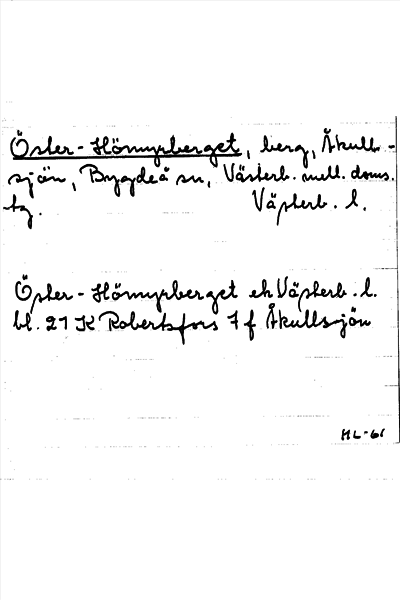 Öster-Hömyrberget, berg, Åkull-
sjön, Bygdeå sn, Västerb. mell. doms.
tg. Västerb. l.
Öster-Hömyrberget ek Västerb. l.
bl. 21 K Robertsfors 7 f Åkullsjön
HL-61